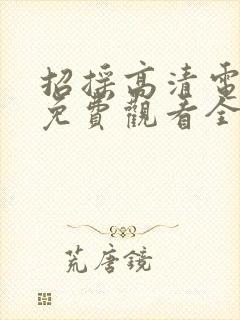 招採高清電
免費觀看全
荒唐鏡